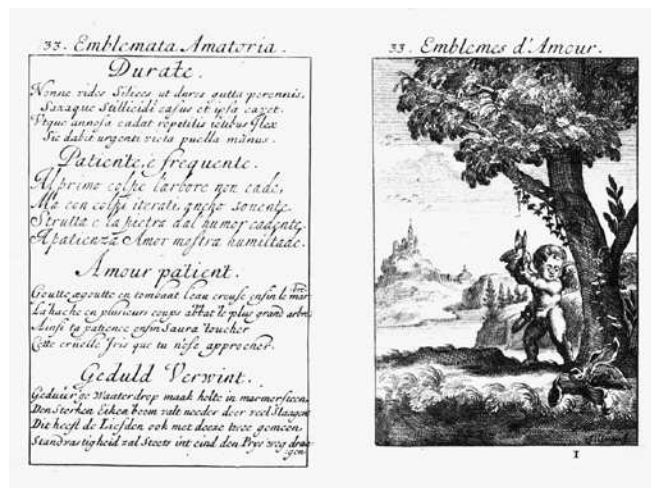 33. Emblemata Amatoria.
Durate.
Nonne vides Silices ut duros gutta perennis,
Saxaque Stillicidi casus et ipsa cavet.
Utque annosa cadat repetitis ictibus Ilex
Sic dabit urgenti victa puella manus.
Patiente, e frequente.
Al primo colpe l'arbore non cade,
Ma con colpi iterati, ancho sonente
Strutta e la pietra dal humor cadente
A patienza Amor mostra humiltade.
Amour patient.
Goutte agoutte en tombant l'eau creuse enfin le mar
bre
La hache en plusieurs coups abbat le plus grand arbre
Ainsi ta patience enfin Saura toucher
Cette cruelle Iris que tu n'ose approcher.
Geduld Verwint.
Geduur'ge Waaterdrop maak holte in marmorsteen
Den Sterken Eiken boom valt needer door veel Slaagen
Dit heeft de Liefden ook met deeze twee gemeen
Standvastigheid zal Steets int eind den Prys weg drag
gen
33. Emblemes d'Amour.
I